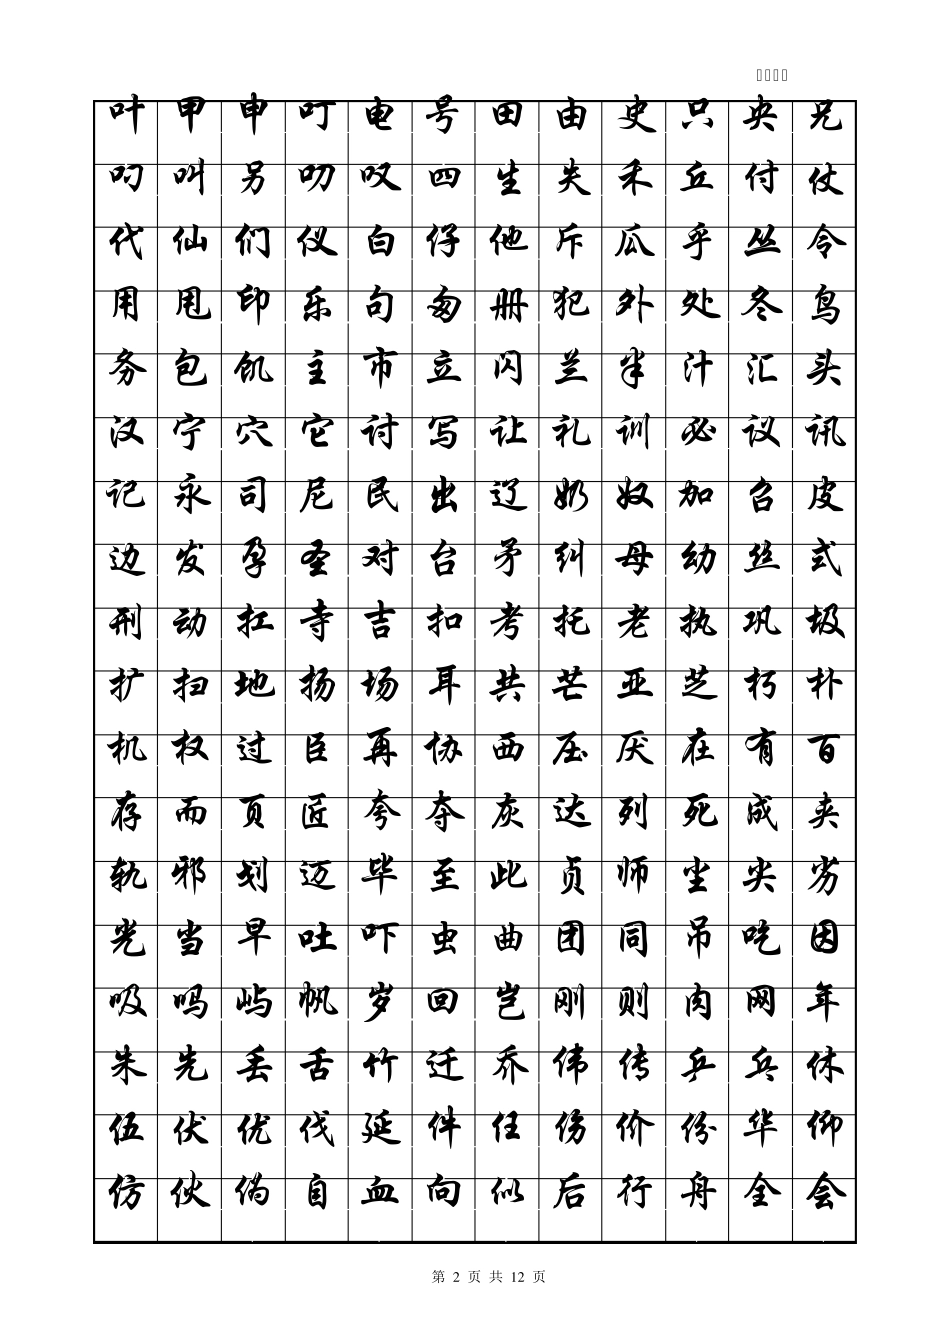 叶 甲 申 叮 电 号 田 由 史 只 央 兄
叼 叫 另 叨 叹 四 生 失 禾 丘 付 仗
代 仙 们 仪 白 仔 他 斥 瓜 乎 丛 令
用 甩 印 乐 句 匆 册 犯 外 处 冬 鸟
务 包 饥 主 市 立 闪 兰 半 汁 汇 头
汉 宁 穴 它 讨 写 让 礼 训 必 议 讯
记 永 司 尼 民 出 辽 奶 奴 加 召 皮
边 发 孕 圣 对 台 矛 纠 母 幼 丝 式
刑 动 扛 寺 吉 扣 考 托 老 执 巩 圾
扩 扫 地 扬 场 耳 共 芒 亚 芝 朽 朴
机 权 过 臣 再 协 西 压 厌 在 有 百
存 而 页 匠 夸 夺 灰 达 列 死 成 夹
轨 邪 划 迈 毕 至 此 贞 师 尘 尖 劣
光 当 早 吐 吓 虫 曲 团 同 吊 吃 因
吸 吗 屿 帆 岁 回 岂 刚 则 肉 网 年
朱 先 丢 舌 竹 迁 乔 伟 传 乒 乓 休
伍 伏 优 伐 延 件 任 伤 价 份 华 仰
仿 伙 伪 自 血 向 似 后 行 舟 全 会
第 2 页 共 12 页